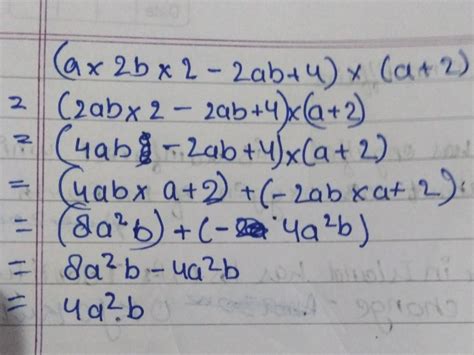 (a × 2b × 2 - 2ab + 4) × (a + 2)
= (2ab × 2 - 2ab + 4) × (a + 2)
= (4ab - 2ab + 4) × (a + 2)
= (4ab × a + 2) + (-2ab × a + 2)
= (8a²b) + (- 4a²b)
= 8a²b - 4a²b
= 4a²b